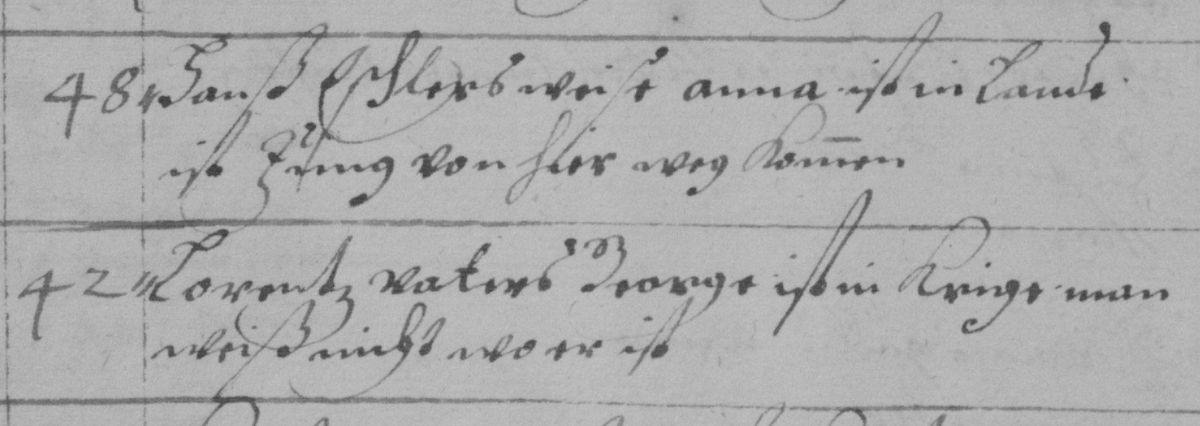 48 Hanß Eschlers weise anna ist in Lande
ist Jung von hier weg kom̅en
42 Lorentz vaters George ist in Krige man
weiß nicht wo er ist